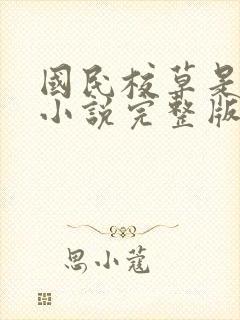 國民校草是
小說完整版
思小蔻